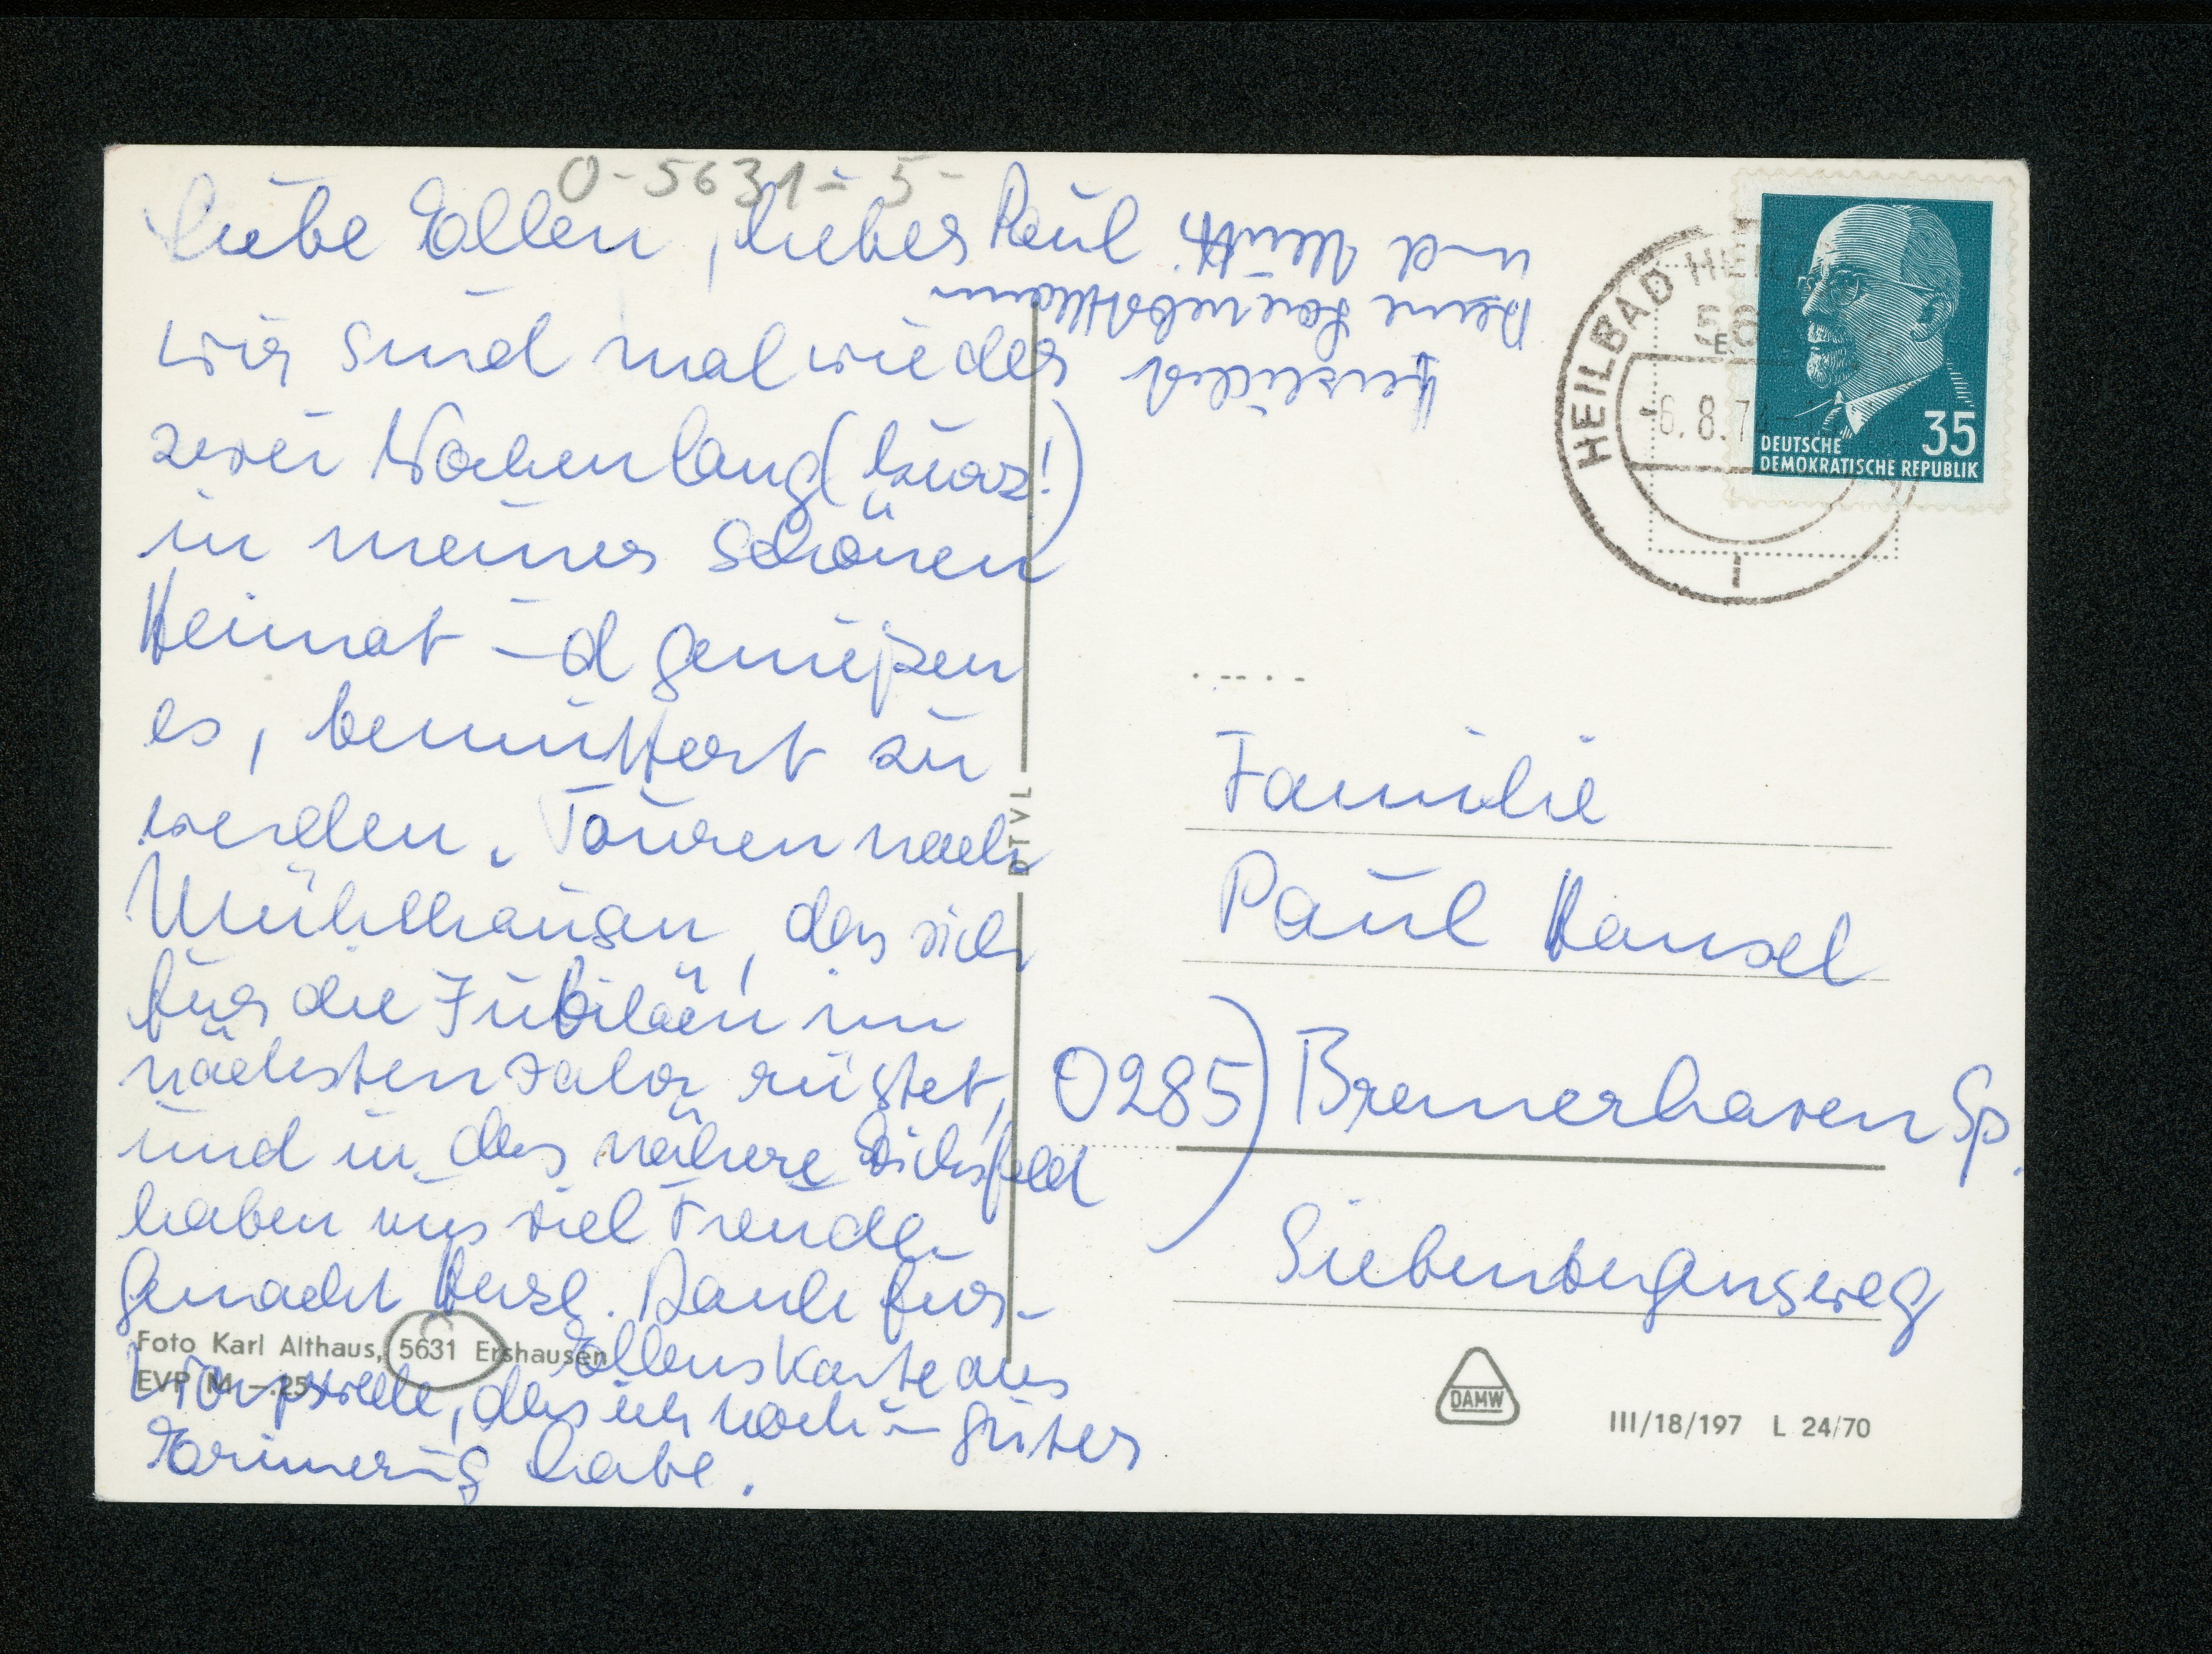 O-5631-5-
Liebe Ellen, lieber Paul
wir sind mal wieder
zwei Wochen lang (kurz!)
in meiner schönen
Heimat und genießen
es, bemuttert zu
werden. Touren nach
Mühlhausen, das sich
für die Jubiläen im
nächsten Jahr rüstet,
und in das nähere Eichsfeld
haben uns viel Freude
gemacht. Herzl. Dank für
Ellens Karte aus
, das ich noch in guter
Erinnerung habe.
Herzlichst
Deine
und Mutti.
Foto Karl Althaus, 5631 Ershausen
EVP M -.25
DTVL
HEILBAD HEIL
56
-6.8.7
35
DEUTSCHE
DEMOKRATISCHE REPUBLIK
Familie
Paul Hansel
0285) Bremerhaven Sp.
Siebenbergensweg
DAMW
III/18/197 L 24/70